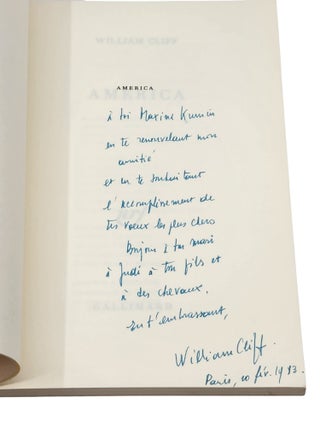 WILLIAM CLIFF
AMERICA
AMERICA
à toi Maxine Kumin
en te renouvelant mon
amitié
et en te souhaitant
l'accomplissement de
tes vœux les plus chers
Bonjour à ton mari
à Judi à ton fils et
à des chevaux.
en t'embrassant,
nrf
GALLIMARD
William Cliff.
Paris, 10 fév. 1983.